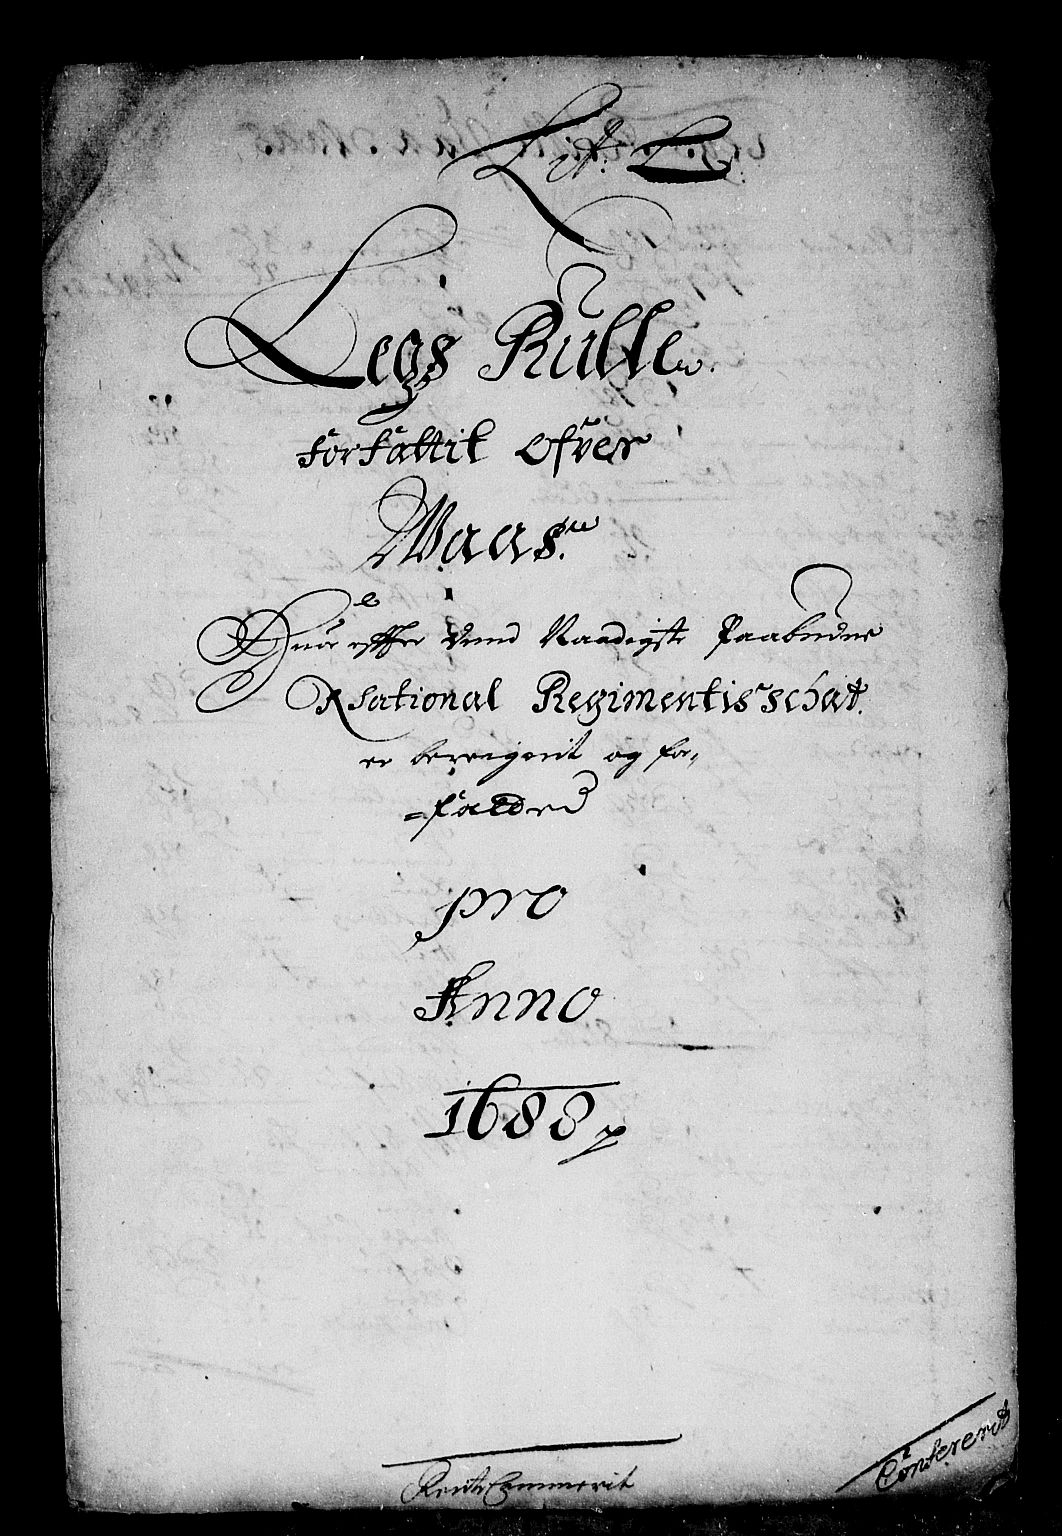 Litt. C.
Legs Rulle.
forfattit ofver
Waas.
Huor effter dend Naadigste Paabudne
National Regimentis schat.
er berregnit og for-
=falded
pro
Anno
1688
Confererit
Rente Cammerit